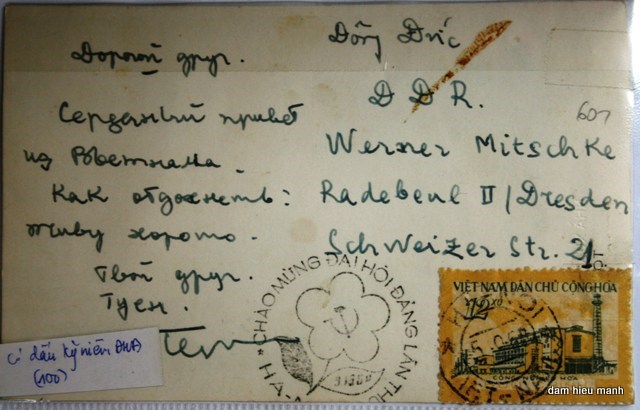 Дорогой друг.
Сердечный привет
из Вьетнама.
Как отдохнеть:
живу хорошо.
Твой друг.
Туен.
Đông Đức
D D R.
601
Werner Mitschke
Radebeul II / Dresden
Schweizer Str. 21
"CHÀO MỪNG ĐẠI HỘI ĐẢNG LẦN THỨ
HÀ-
9.1960
VIỆT NAM DÂN CHỦ CỘNG HÒA
12 xu
VIET-NAM
Có dấu kỷ niệm ĐHĐ
(100)
dam hieu manh